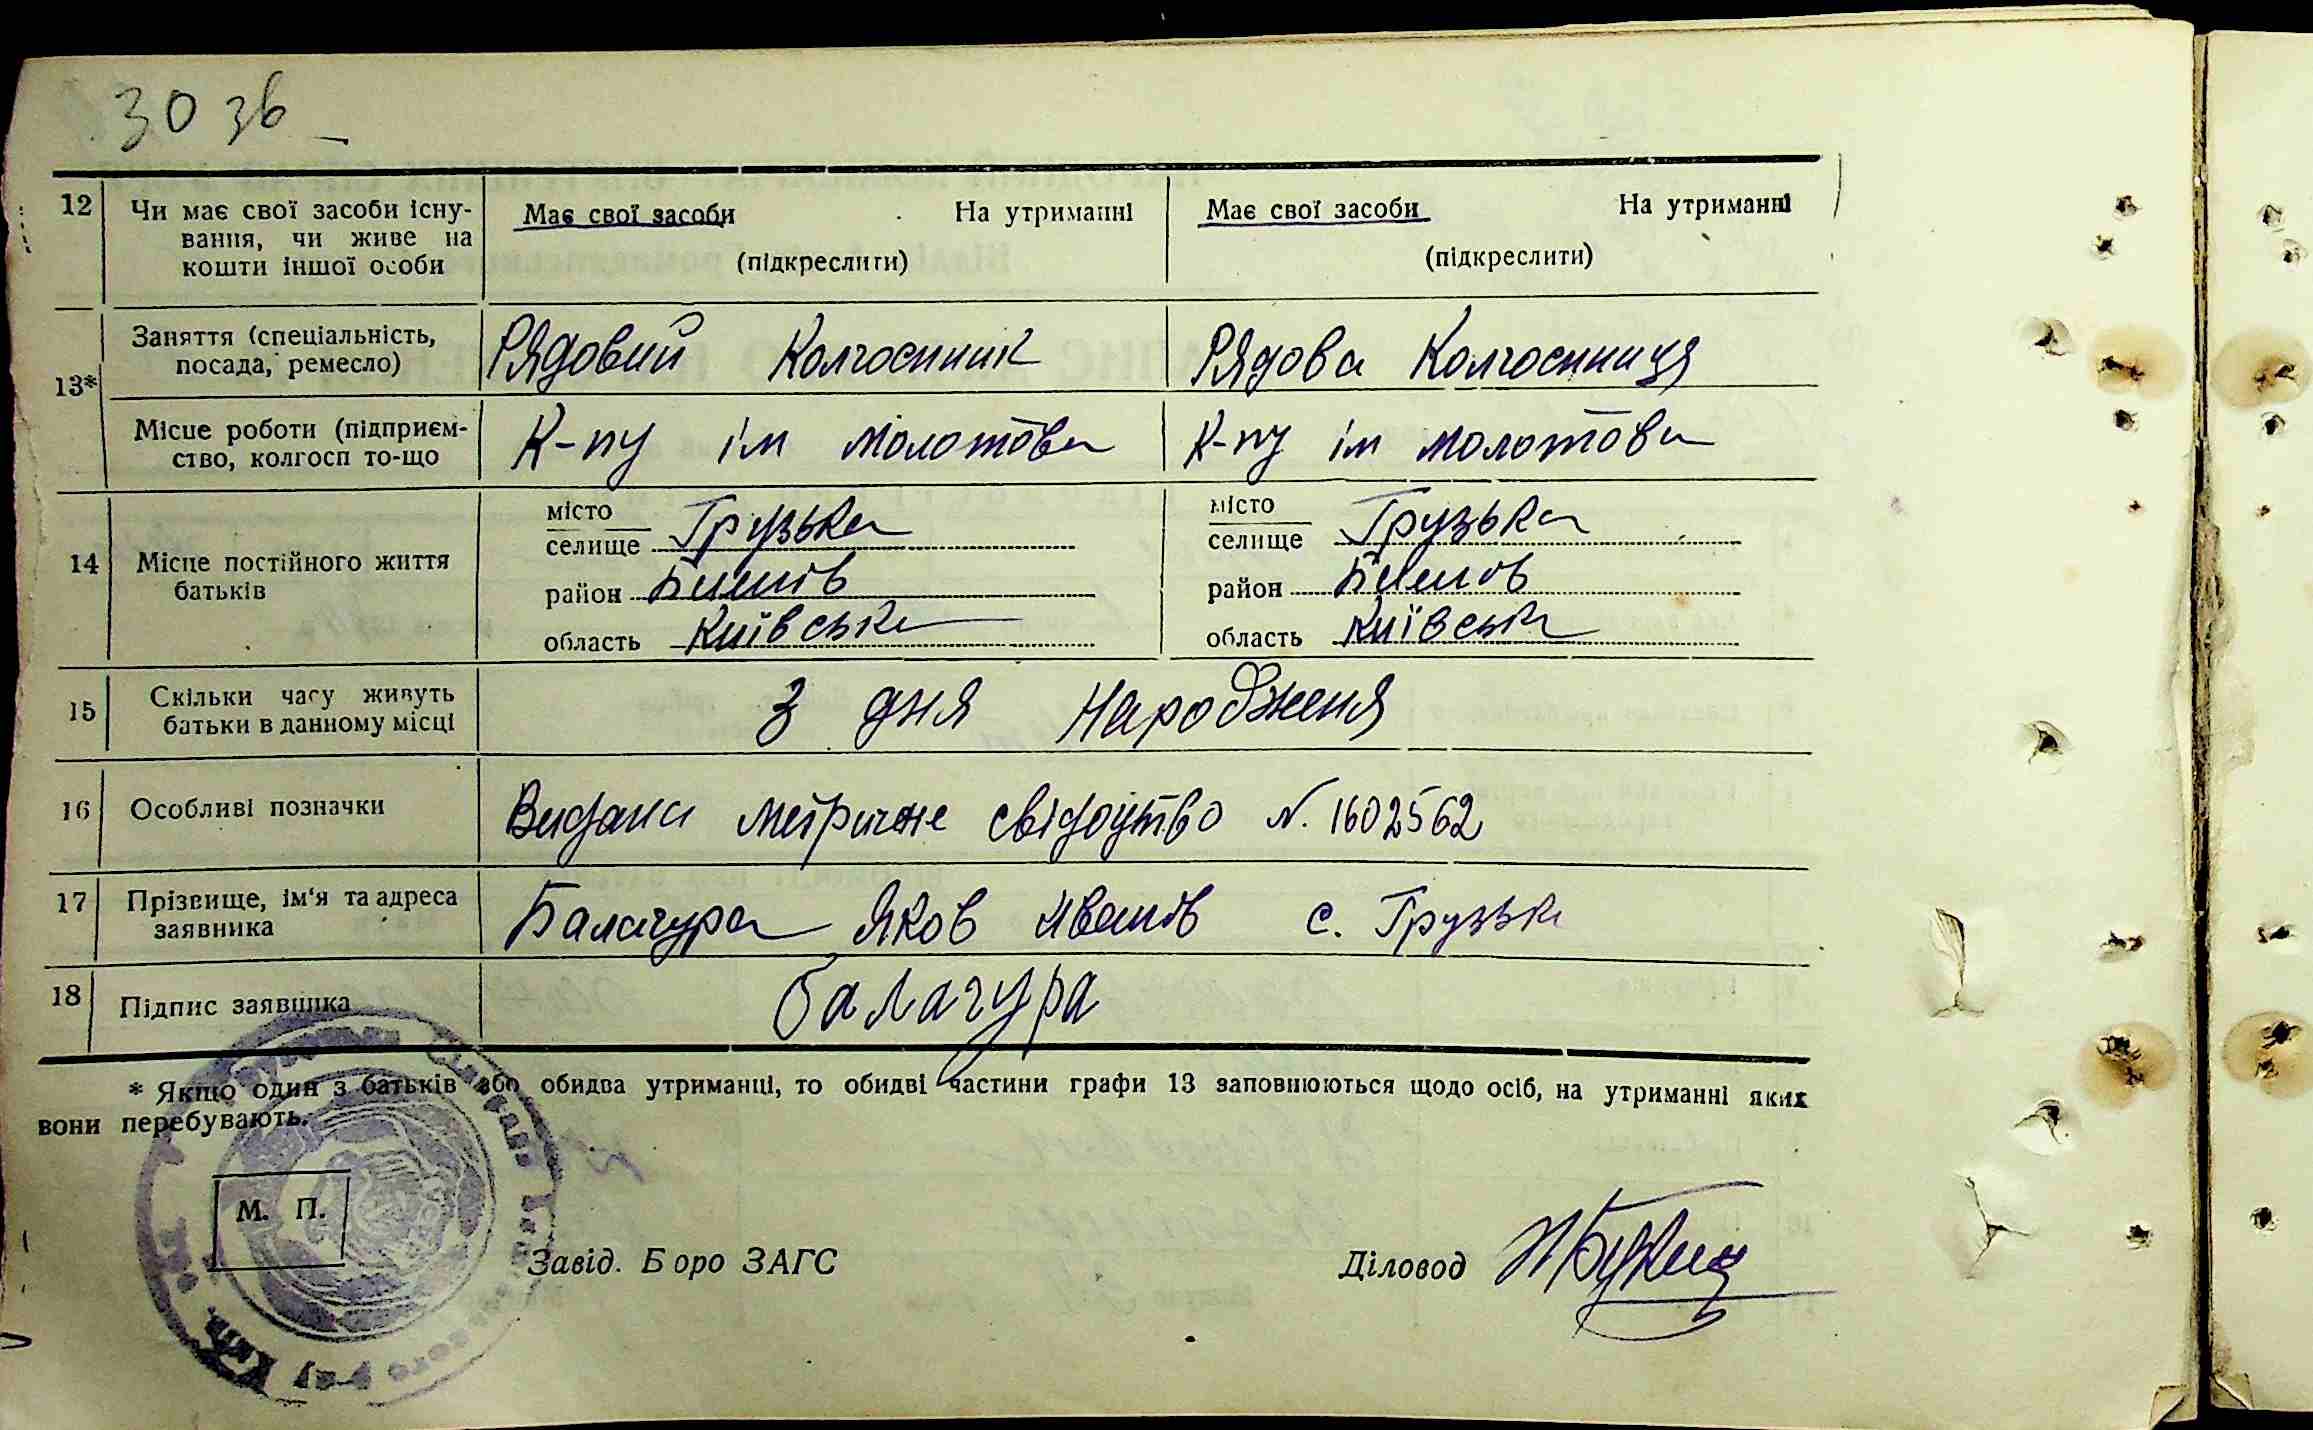 30 зв
12 Чи має свої засоби існу-
вання, чи живе на
кошти іншої особи
Має свої засоби На утриманні
(підкреслити)
Має свої засоби На утриманні
(підкреслити)
13*
Заняття (спеціальність,
посада, ремесло)
Рядовий Колгоспник
Рядова Колгоспниця
Місце роботи (підприєм-
ство, колгосп то-що
К-пу ім молотова
К-пу ім молотова
14 Місце постійного життя
батьків
місто
селище Грузька
район Бишів
область Київська
місто
селище Грузька
район Бишов
область Київська
15 Скільки часу живуть
батьки в данному місці
З дня Народженя
16 Особливі позначки
Видана метричне свідоцтво N. 1602562
17 Прізвище, ім'я та адреса
заявника
Балагура Яков Иванів с. Грузька
18 Підпис заявника
балагура
* Якщо один з батьків або обидва утриманці, то обидві частини графи 13 заповнюються щодо осіб, на утриманні яких
вони перебувають.
М. П.
Завід. Бюро ЗАГС
Діловод